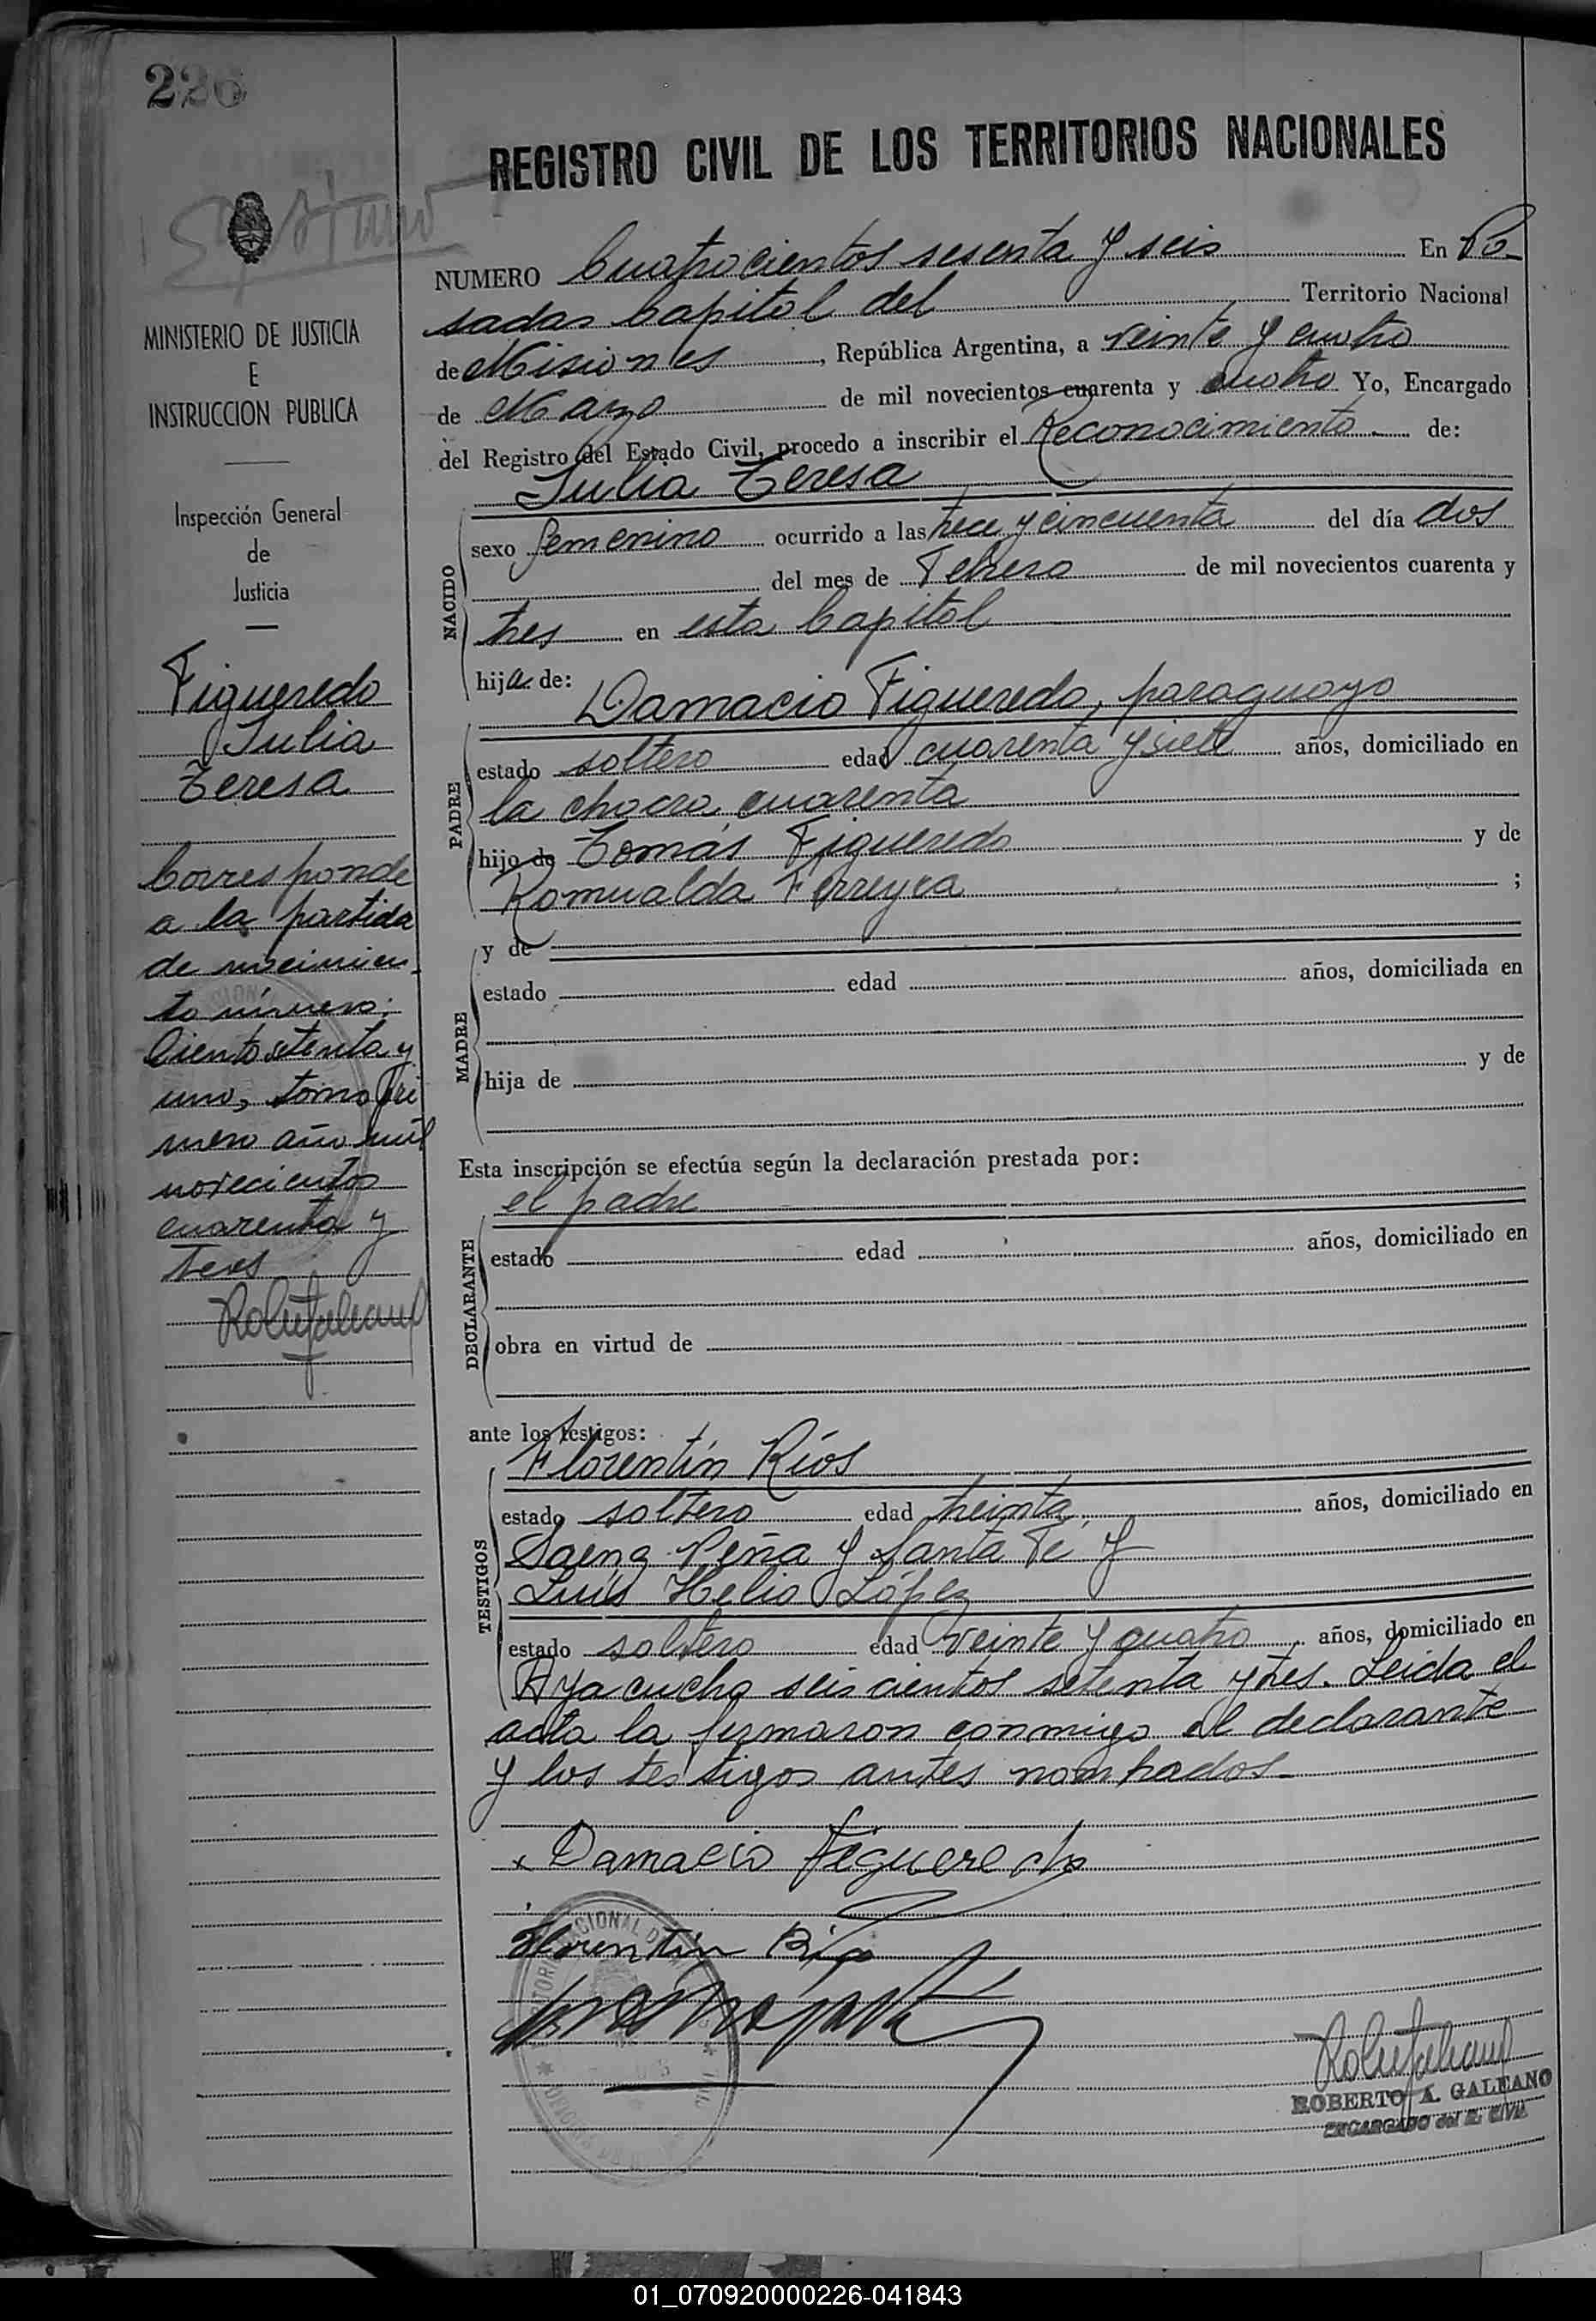 226
REGISTRO CIVIL DE LOS TERRITORIOS NACIONALES
MINISTERIO DE JUSTICIA
E
INSTRUCCION PUBLICA
Inspección General
de
Justicia
Figueredo
Julia
Teresa
Corresponde
a la partida
de nacimien-
to número:
Ciento setenta y
uno, tomo Pri
mero año mil
novecientos
cuarenta y
tres
NUMERO Cuatrocientos sesenta y seis En Po-
sadas Capital del Territorio Nacional
de Misiones, República Argentina, a veinte y cuatro
de Marzo de mil novecientos cuarenta y cuatro Yo, Encargado
del Registro del Estado Civil, procedo a inscribir el Reconocimiento. de:
Julia Teresa
NACIDO
sexo femenino ocurrido a las trece y cincuenta del día dos
del mes de Febrero de mil novecientos cuarenta y
tres en esta Capital
hija de:
Damacio Figueredo, paraguayo
PADRE
estado soltero edad cuarenta y siete años, domiciliado en
la chacra cuarenta
hijo de Tomás Figueredo y de
Romualda Ferreyra ;
y de
MADRE
estado edad años, domiciliada en
hija de y de
Esta inscripción se efectúa según la declaración prestada por:
el padre
DECLARANTE
estado edad años, domiciliado en
obra en virtud de
ante los testigos:
Florentín Ríos
TESTIGOS
estado soltero edad treinta, años, domiciliado en
Saenz Peña y Santa Fé y
Luis Helio López
estado soltero edad veinte y cuatro años, domiciliado en
Ayacucho seiscientos setenta y tres. Leida el
acta la firmaron conmigo el declarante
y los testigos antes nombrados-
x Damacio Figueredo
Florentin Rios
ROBERTO A. GALEANO
ENCARGADO del R. CIVIL
01_070920000226-041843